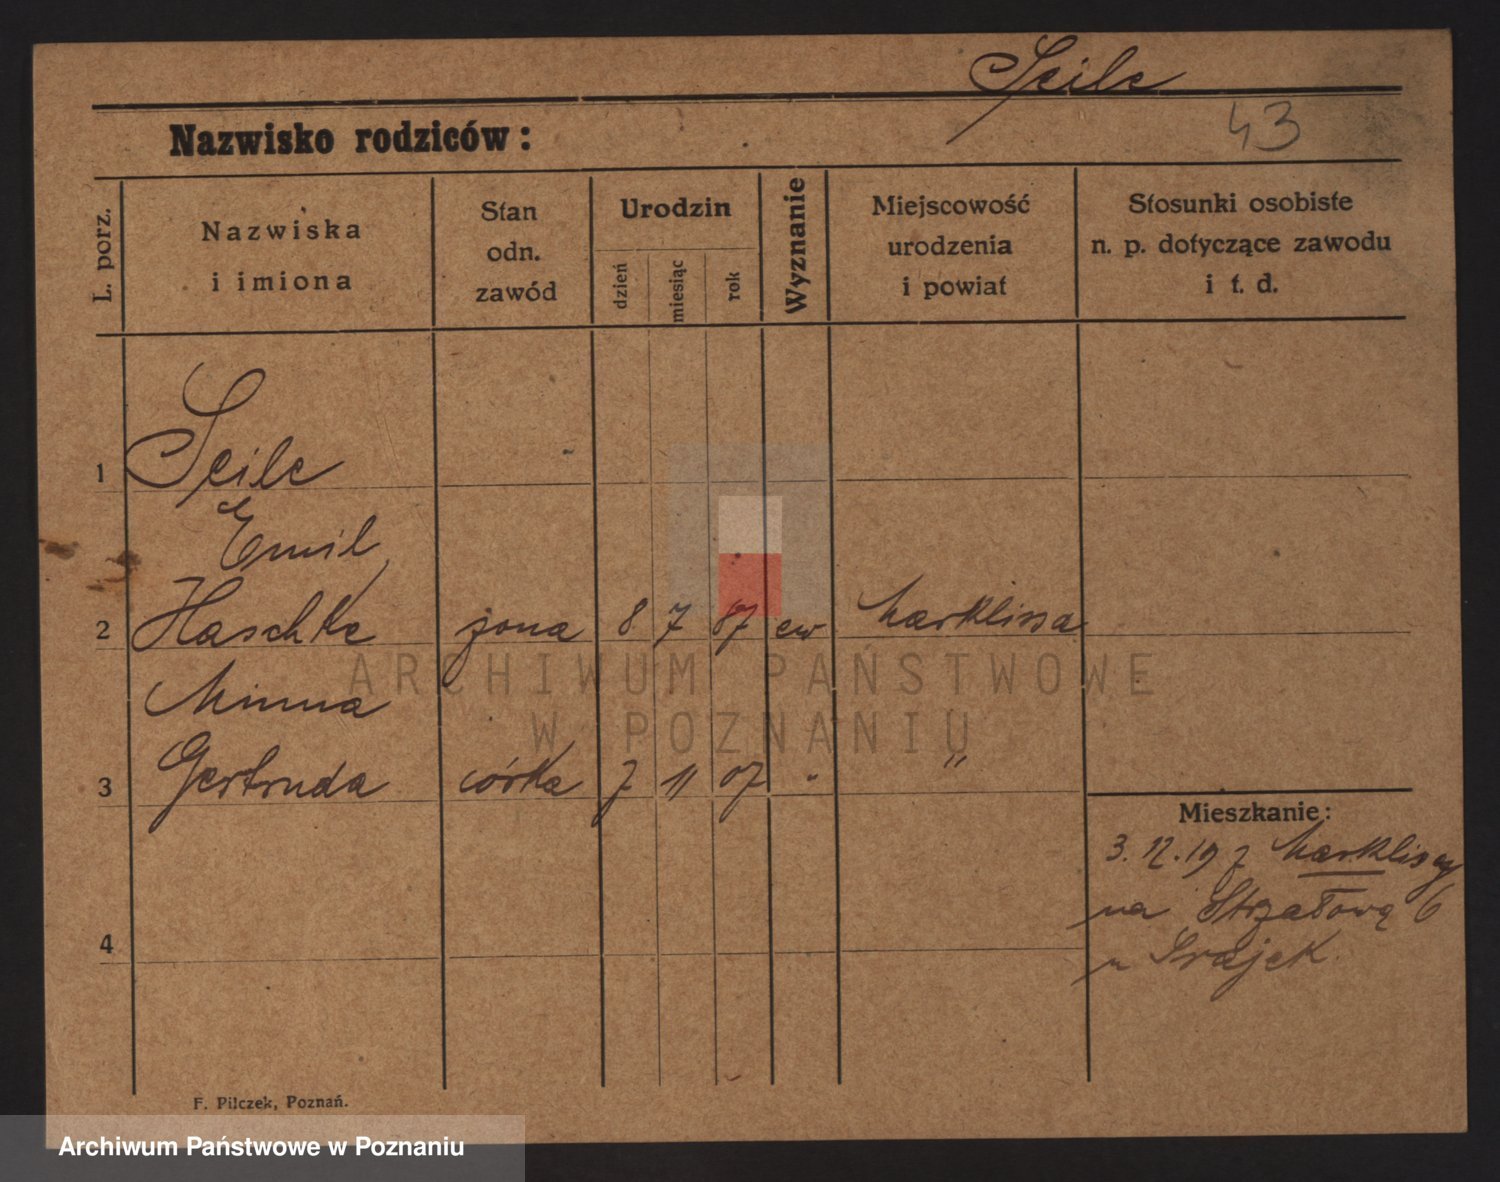 Seile
43
Nazwisko rodziców:
L. porz.
Nazwiska
i imiona
Stan
odn.
zawód
Urodzin
dzień
miesiąc
rok
Wyznanie
Miejscowość
urodzenia
i powiat
Stosunki osobiste
n. p. dotyczące zawodu
i t. d.
1 Seile
Emil
2 Haschke żona 8 7 87 ew Marklissa
Minna
3 Gertruda córka 7 11 07 " "
4
Mieszkanie:
3.12.19 z Marklissy
na Strzałową 6
u Srajek.
F. Pilczek, Poznań.
ARCHIWUM PAŃSTWOWE
W POZNANIU
Archiwum Państwowe w Poznaniu